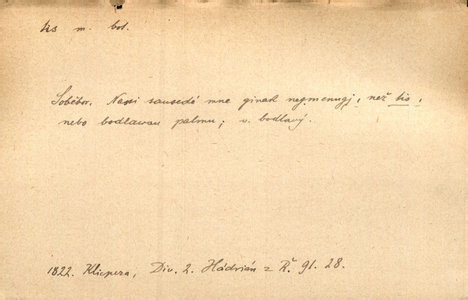 tis m. bot.
Soběbor. Nassi sausedé mne ginak negmenugj, než tis,
nebo bodlawau palmu; v. bodlavý.
1822. Klicpera, Div. 2. Hádrián z Ř. 91. 28.